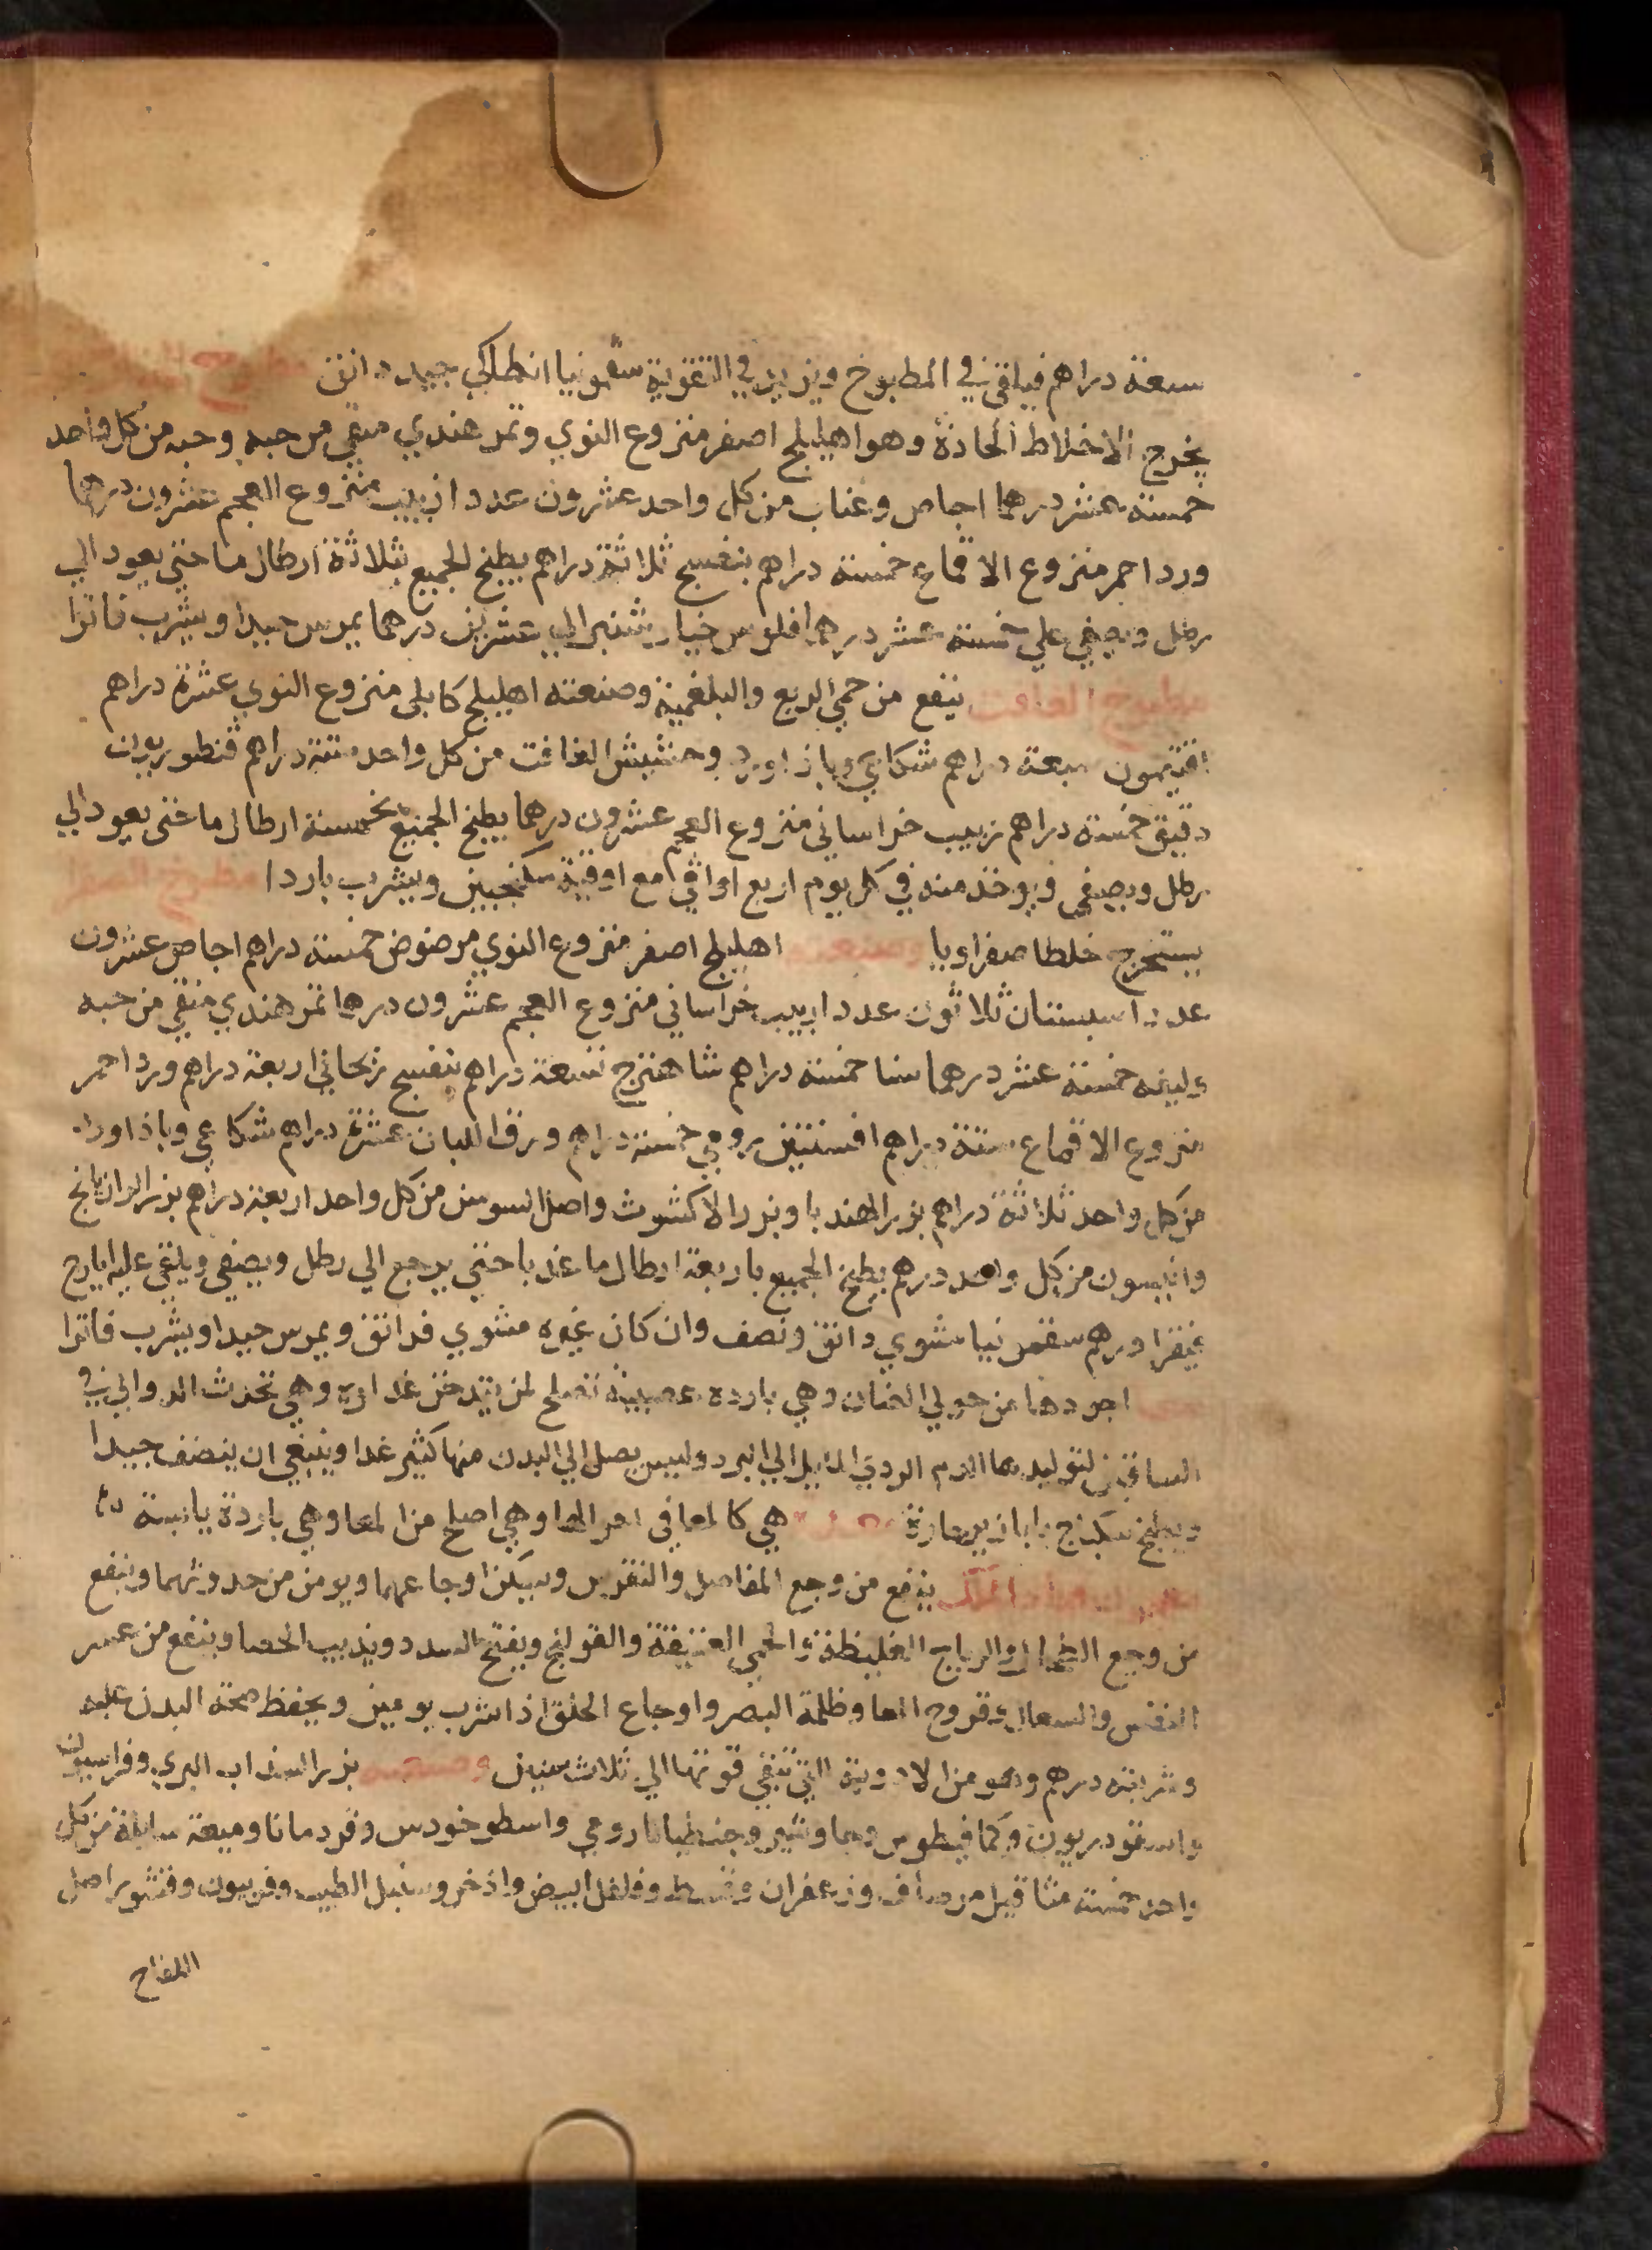 سبعة دراهم فيلقى في المطبوخ ويزيد في التقوية سقمونيا انطاكي جيد دانق مطبوخ
يخرج الاخلاط الحادة وهو اهليلج اصفر منزوع النوي وتمر هندي منقي من حبه وحبه من كل واحد
خمسة عشر درهما اجاص وعناب من كل واحد عشرون عددا زبيب منزوع العجم عشرون درهما
ورد احمر منزوع الاقماع خمسة دراهم بنفسج ثلاثة دراهم يطبخ الجميع بثلاثة ارطال ما حتي يعود الي
رطل ويصفي علي خمسة عشر درهما فلوس خيار شنبر الي عشرين درهما يمرس جيدا ويشرب فاترا
مطبوخ الغافت ينفع من حمي الربع والبلغمية وصنعته اهليلج كابلي منزوع النوي عشرة دراهم
افتيمون سبعة دراهم شكاعي وباذاورد وحشيش الغافت من كل واحد ستة دراهم قنطوريون
دقيق خمسة دراهم زبيب خراساني منزوع العجم عشرون درهما يطبخ الجميع بخمسة ارطال ما حتي يعود الي
رطل ويصفي ويوخذ منه في كل يوم اربع اواقي مع اوقية سكنجبين ويشرب باردا مطبوخ
يستخرج خلطا صفراويا وصنعته اهليلج اصفر منزوع النوي مرضوض خمسة دراهم اجاص عشرون
عددا سبستان ثلاثون عددا زبيب خراساني منزوع العجم عشرون درهما تمر هندي منقي من حبه
وليفه خمسة عشر درهما سنا خمسة دراهم شاهترج تسعة دراهم بنفسج ريحاني اربعة دراهم ورد احمر
منزوع الاقماع ستة دراهم افسنتين رومي خمسة دراهم ورق اللبان عشرة دراهم شكاعي وباذاورد
من كل واحد ثلاثة دراهم بزر الهندبا وبزر الاكشوث واصل السوس من كل واحد اربعة دراهم بزر الرازيانج
وانيسون من كل واحد درهم يطبخ الجميع باربعة ارطال ما عذبا حتي يرجع الي رطل ويصفي ويلقي عليه ايارج
فيقرا درهم سقمونيا مشوي دانق ونصف وان كان غيره مشوي فدانق ويمرس جيدا ويشرب فاترا
اجودها من حولي الضان وهي بارده عصبية تصلح لمن يتدخن غداوه وهي تحدث الدوالي في
الساقين لتوليدها الدم الردي المايل الي البرد وليس يصل الي البدن منها كثير غدا وينبغي ان ينضف جيدا
ويطبخ سكباج بابازير حارة هي كالمعا في امر المعا وهي اصلح من المعا وهي باردة يابسة
ينفع من وجع المفاصل والنقرس ويسكن اوجاعهما ويومن من حدوثهما وينفع
من وجع الطحال والرياح الغليظة والحمي العتيقة والقولنج ويفتح السدد ويذيب الحصا وينفع من عسر
النفس والسعال وقروح المعا وظلمة البصر واوجاع الحلق اذا شرب يومين ويحفظ صحة البدن عليه
وشربته درهم وهو من الادوية التي تبقي قوتها الي ثلاث سنين وصنعته بزر السذاب البري وفراسيون
واسقودريون وكمافيطوس وجاوشير وجنطيانا رومي واسطوخودس وقردمانا وميعة سايلة من كل
واحد خمسة مثاقيل مر صاف وزعفران وقسط وفلفل ابيض واذخر وسنبل الطيب وفربيون وقشور اصل
اللفاح